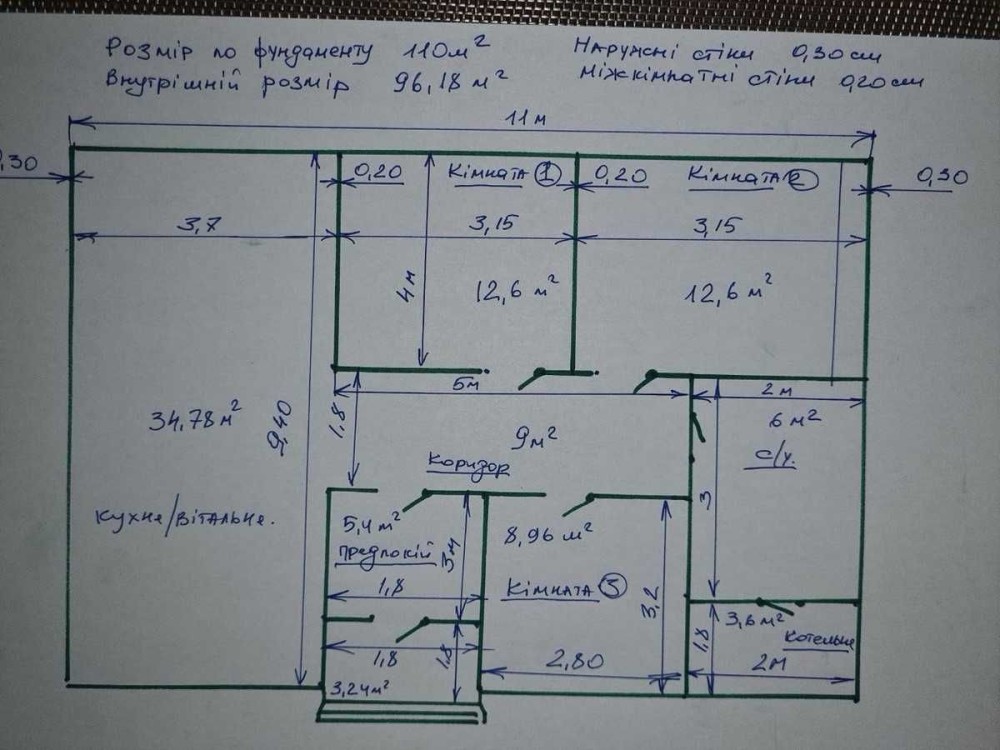 Розмір по фундаменту 110м² Наружні стіни 0,30см
Внутрішній розмір 96,18 м² Міжкімнатні стіни 0,20см
11 м
0,20 Кімната 1 0,20 Кімната 2 0,30
3,7 3,15 3,15
4м 12,6 м² 12,6 м²
5м 2м
34,78м² 9,40 1,8 9м² 6 м²
Коридор с/у.
3
Кухне/вітальне.
5,4м² 8,96 м²
Предпокій 3м
1,8 Кімната 3 3,2
3,6м²
Котельне
1,8 1,8 2,80 1,8 2м
3,24м²